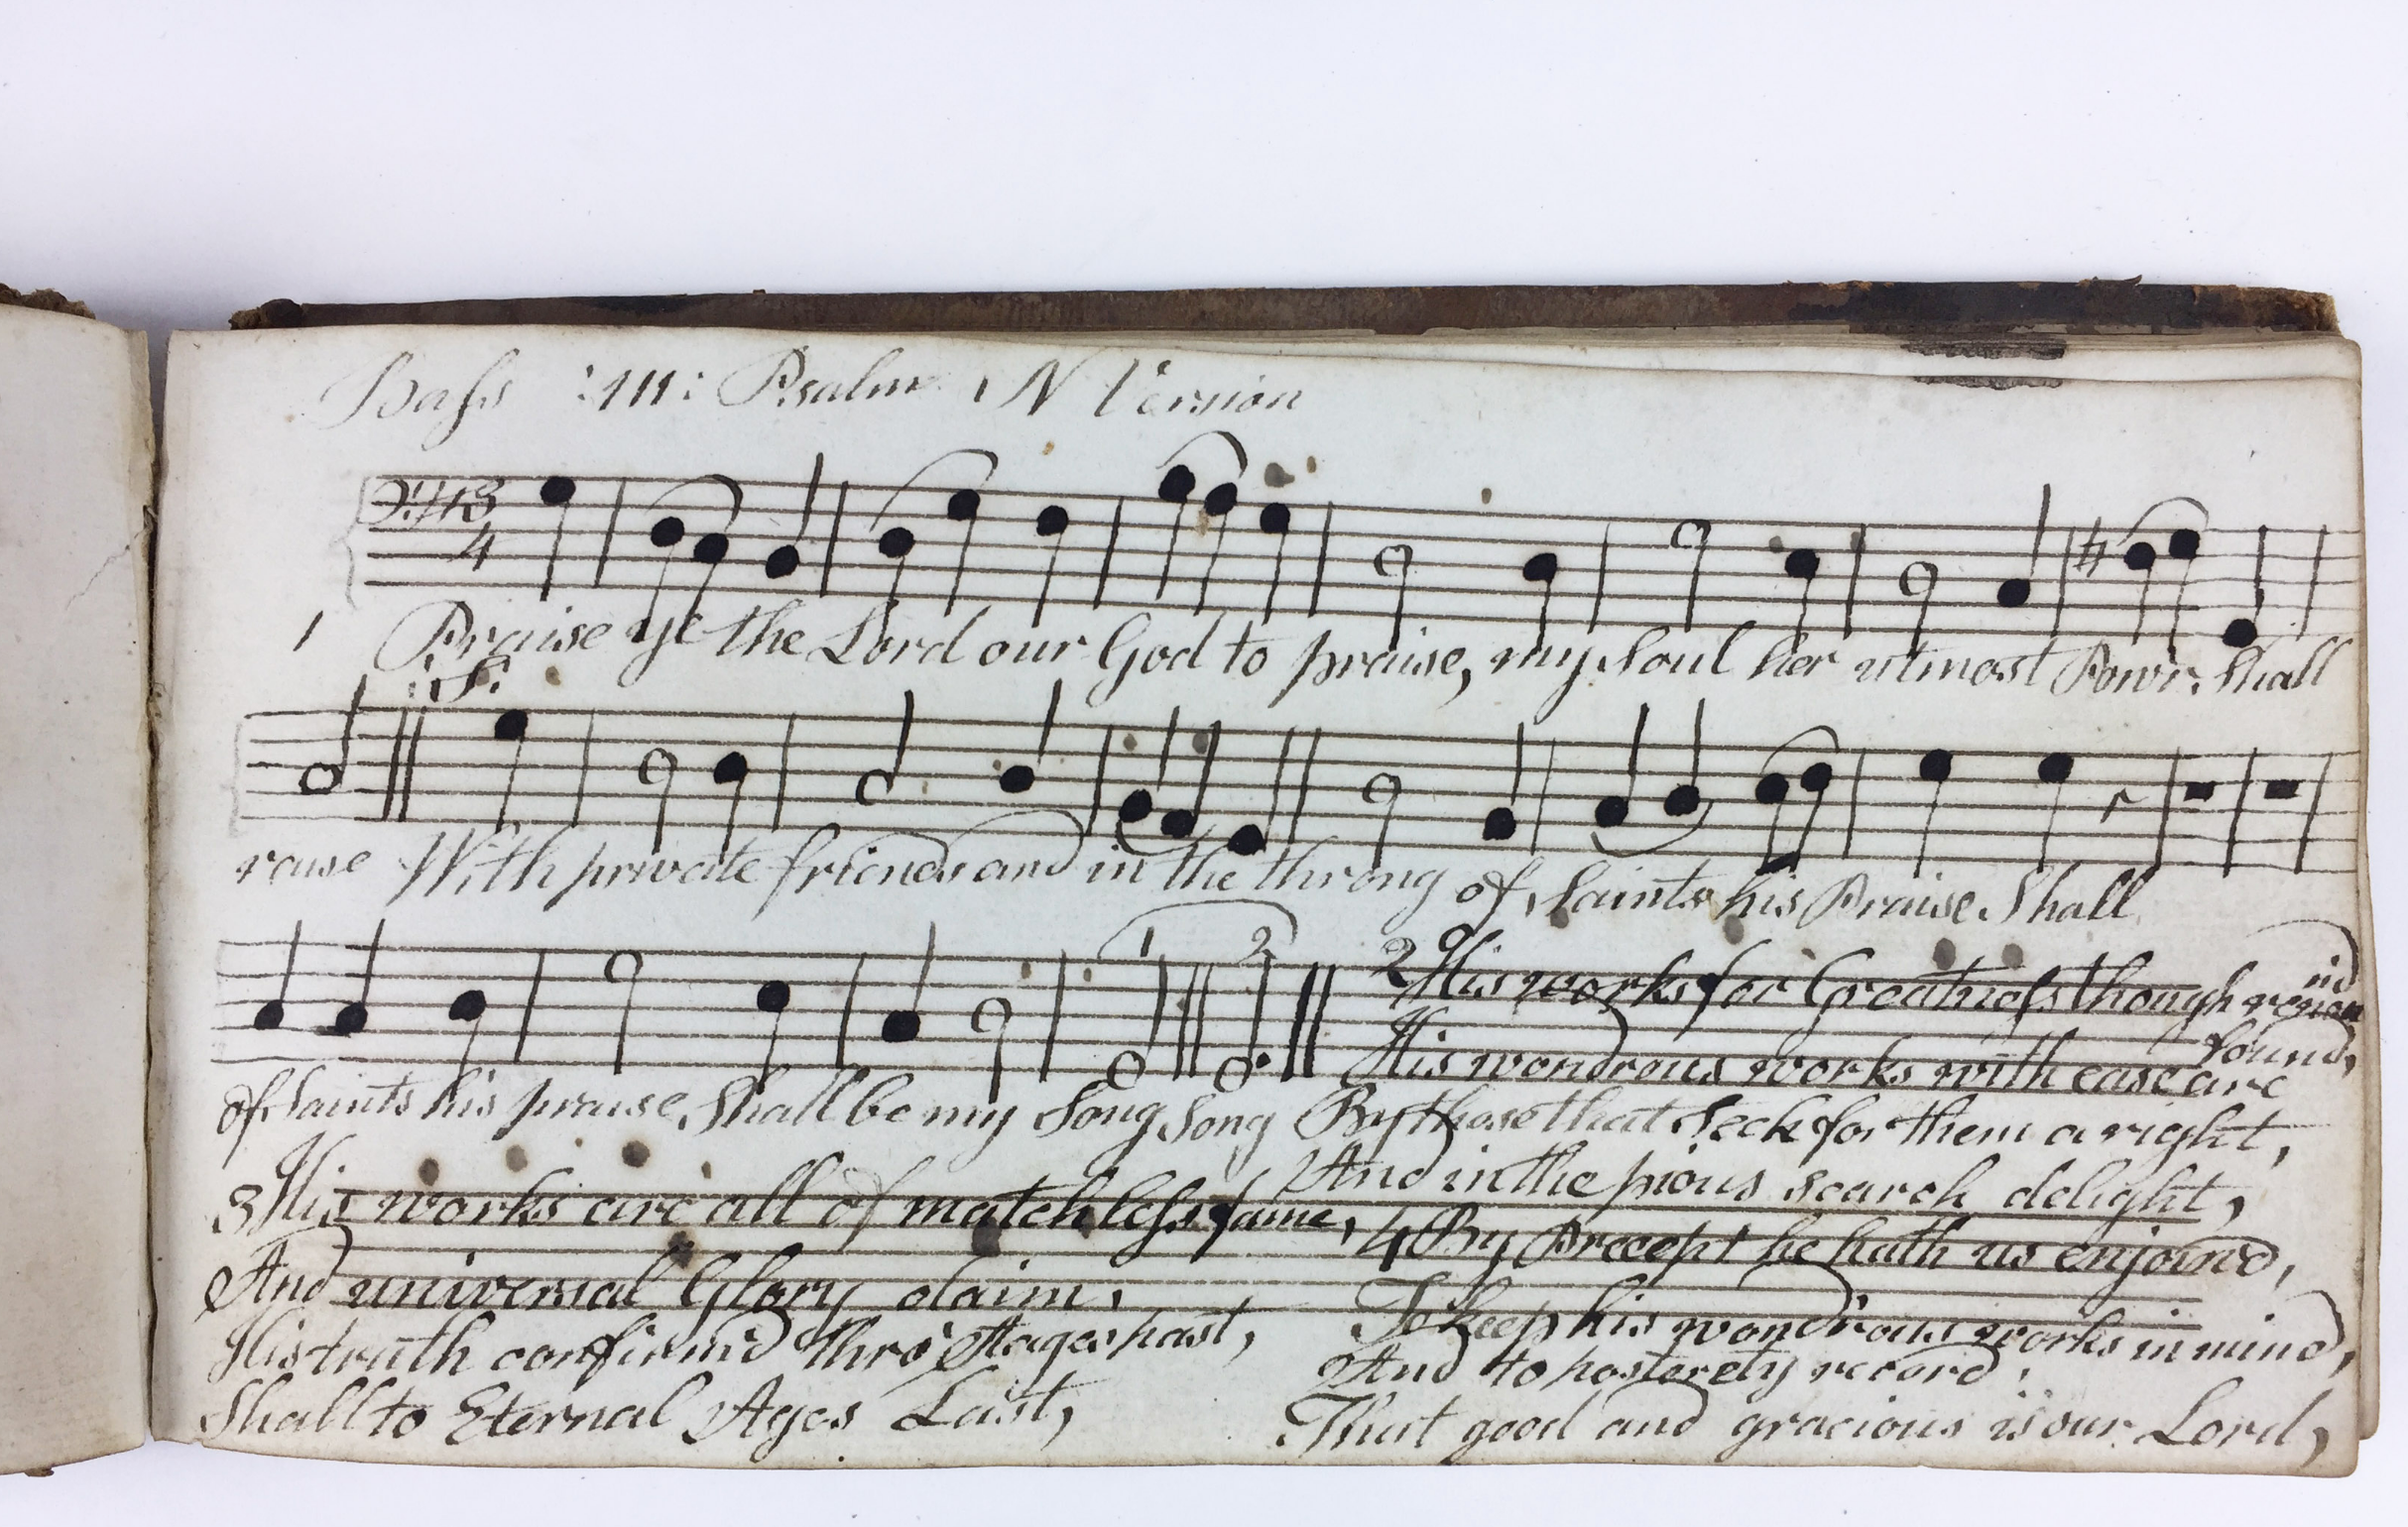 Bass :111: Psalm N Version
3
4
1 Praise ye the Lord our God to praise, my Soul her utmost Powr. Shall
:S:
raise With private friends and in the throng of Saints his Praise Shall
1 2
of Saints his praise Shall be my Song Song
2 His works for Greatness though
His wondrous works with ease are found,
By those that Seek for them a right,
And in the pious search delight,
3 His works are all of matchless fame,
And universal Glory claim,
His truth confirm'd thro'
Shall to Eternal Ages Last,
4 By Precept he hath us enjoind,
To keep his wondrous works in mind,
And to posterety record.
That good and gracious is our Lord,